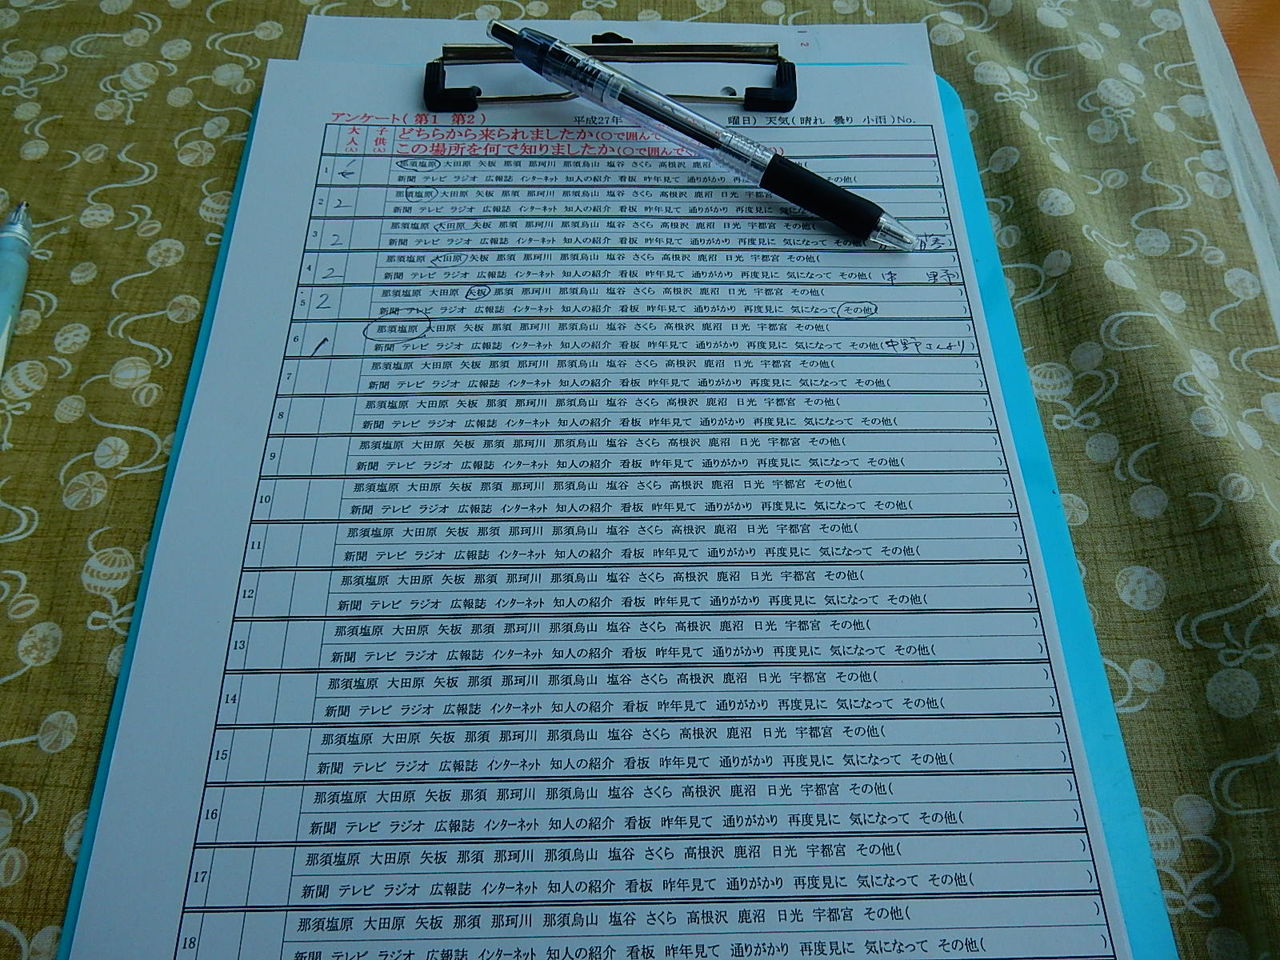 アンケート(第1 第2) 平成27年 曜日) 天気(晴れ 曇り 小雨)No.
大人(人) 子供(人) どちらから来られましたか(○で囲んで
この場所を何で知りましたか(○で囲んで )
1 那須塩原 大田原 矢板 那須 那珂川 那須烏山 塩谷 さくら 高根沢 鹿沼 )
新聞 テレビ ラジオ 広報誌 インターネット 知人の紹介 看板 昨年見て 通りがかり 再度 )
2 2 那須塩原 大田原 矢板 那須 那珂川 那須烏山 塩谷 さくら 高根沢 鹿沼 日光 )
新聞 テレビ ラジオ 広報誌 インターネット 知人の紹介 看板 昨年見て 通りがかり 再度見に 気になって )
3 2 那須塩原 大田原 矢板 那須 那珂川 那須烏山 塩谷 さくら 高根沢 鹿沼 日光 宇都宮 )
新聞 テレビ ラジオ 広報誌 インターネット 知人の紹介 看板 昨年見て 通りがかり 再度見に 気になって その他( )
4 2 那須塩原 大田原 矢板 那須 那珂川 那須烏山 塩谷 さくら 高根沢 鹿沼 日光 宇都宮 その他( )
新聞 テレビ ラジオ 広報誌 インターネット 知人の紹介 看板 昨年見て 通りがかり 再度見に 気になって その他( 野)
5 2 那須塩原 大田原 矢板 那須 那珂川 那須烏山 塩谷 さくら 高根沢 鹿沼 日光 宇都宮 その他( )
新聞 テレビ ラジオ 広報誌 インターネット 知人の紹介 看板 昨年見て 通りがかり 再度見に 気になって その他( )
6 1 那須塩原 大田原 矢板 那須 那珂川 那須烏山 塩谷 さくら 高根沢 鹿沼 日光 宇都宮 その他( )
新聞 テレビ ラジオ 広報誌 インターネット 知人の紹介 看板 昨年見て 通りがかり 再度見に 気になって その他(中野さんより)
7 那須塩原 大田原 矢板 那須 那珂川 那須烏山 塩谷 さくら 高根沢 鹿沼 日光 宇都宮 その他( )
新聞 テレビ ラジオ 広報誌 インターネット 知人の紹介 看板 昨年見て 通りがかり 再度見に 気になって その他( )
8 那須塩原 大田原 矢板 那須 那珂川 那須烏山 塩谷 さくら 高根沢 鹿沼 日光 宇都宮 その他( )
新聞 テレビ ラジオ 広報誌 インターネット 知人の紹介 看板 昨年見て 通りがかり 再度見に 気になって その他( )
9 那須塩原 大田原 矢板 那須 那珂川 那須烏山 塩谷 さくら 高根沢 鹿沼 日光 宇都宮 その他( )
新聞 テレビ ラジオ 広報誌 インターネット 知人の紹介 看板 昨年見て 通りがかり 再度見に 気になって その他( )
10 那須塩原 大田原 矢板 那須 那珂川 那須烏山 塩谷 さくら 高根沢 鹿沼 日光 宇都宮 その他( )
新聞 テレビ ラジオ 広報誌 インターネット 知人の紹介 看板 昨年見て 通りがかり 再度見に 気になって その他( )
11 那須塩原 大田原 矢板 那須 那珂川 那須烏山 塩谷 さくら 高根沢 鹿沼 日光 宇都宮 その他( )
新聞 テレビ ラジオ 広報誌 インターネット 知人の紹介 看板 昨年見て 通りがかり 再度見に 気になって その他( )
12 那須塩原 大田原 矢板 那須 那珂川 那須烏山 塩谷 さくら 高根沢 鹿沼 日光 宇都宮 その他( )
新聞 テレビ ラジオ 広報誌 インターネット 知人の紹介 看板 昨年見て 通りがかり 再度見に 気になって その他( )
13 那須塩原 大田原 矢板 那須 那珂川 那須烏山 塩谷 さくら 高根沢 鹿沼 日光 宇都宮 その他( )
新聞 テレビ ラジオ 広報誌 インターネット 知人の紹介 看板 昨年見て 通りがかり 再度見に 気になって その他( )
14 那須塩原 大田原 矢板 那須 那珂川 那須烏山 塩谷 さくら 高根沢 鹿沼 日光 宇都宮 その他( )
新聞 テレビ ラジオ 広報誌 インターネット 知人の紹介 看板 昨年見て 通りがかり 再度見に 気になって その他( )
15 那須塩原 大田原 矢板 那須 那珂川 那須烏山 塩谷 さくら 高根沢 鹿沼 日光 宇都宮 その他( )
新聞 テレビ ラジオ 広報誌 インターネット 知人の紹介 看板 昨年見て 通りがかり 再度見に 気になって その他( )
16 那須塩原 大田原 矢板 那須 那珂川 那須烏山 塩谷 さくら 高根沢 鹿沼 日光 宇都宮 その他( )
新聞 テレビ ラジオ 広報誌 インターネット 知人の紹介 看板 昨年見て 通りがかり 再度見に 気になって その他( )
17 那須塩原 大田原 矢板 那須 那珂川 那須烏山 塩谷 さくら 高根沢 鹿沼 日光 宇都宮 その他( )
新聞 テレビ ラジオ 広報誌 インターネット 知人の紹介 看板 昨年見て 通りがかり 再度見に 気になって その他( )
18 那須塩原 大田原 矢板 那須 那珂川 那須烏山 塩谷 さくら 高根沢 鹿沼 日光 宇都宮 その他( )
新聞 テレビ ラジオ 広報誌 インターネット 知人の紹介 看板 昨年見て 通りがかり 再度見に 気になって その他( )